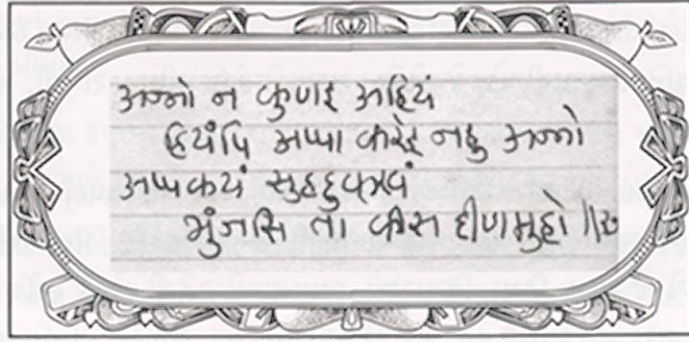 अन्नो न कुणइ अहियं
हियंपि अप्पा करेइ नहु अन्नो
अप्पकयं सुहदुक्खं
भुंजसि ता कीस दीणमुहो ॥